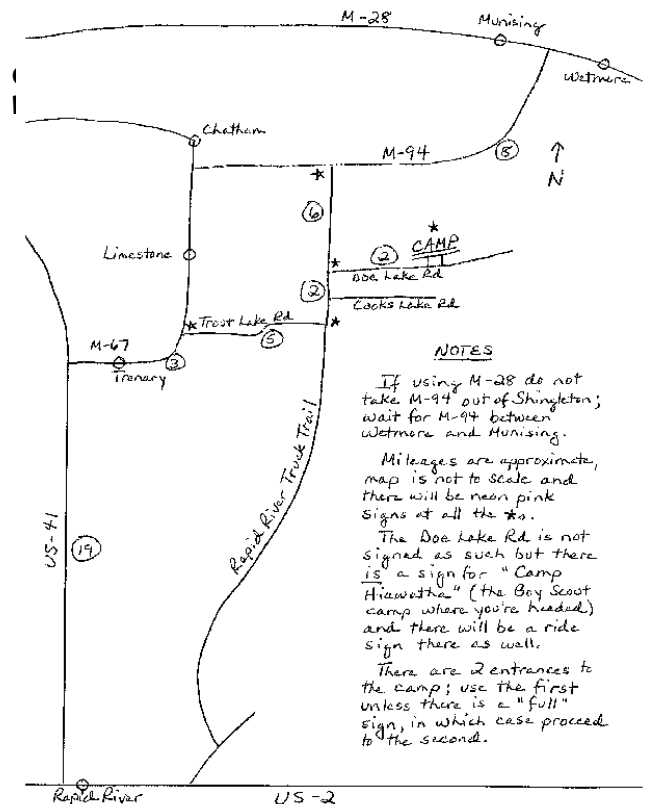 M-28
Munising
Wetmore
Chatham
M-94
5
↑
N
*
6
*
CAMP
Limestone
2
*
Doe Lake Rd
2
Cooks Lake Rd
* Trout Lake Rd
*
5
M-67
3
Trenary
NOTES
If using M-28 do not
take M-94 out of Shingleton;
wait for M-94 between
Wetmore and Munising.
Mileages are approximate,
map is not to scale and
there will be neon pink
signs at all the *s.
The Doe Lake Rd is not
signed as such but there
is a sign for "Camp
Hiawatha" (the Boy Scout
camp where you're headed)
and there will be a ride
sign there as well.
There are 2 entrances to
the camp; use the first
unless there is a "full"
sign, in which case proceed
to the second.
Rapid River Truck Trail
US-41
19
Rapid River
US-2